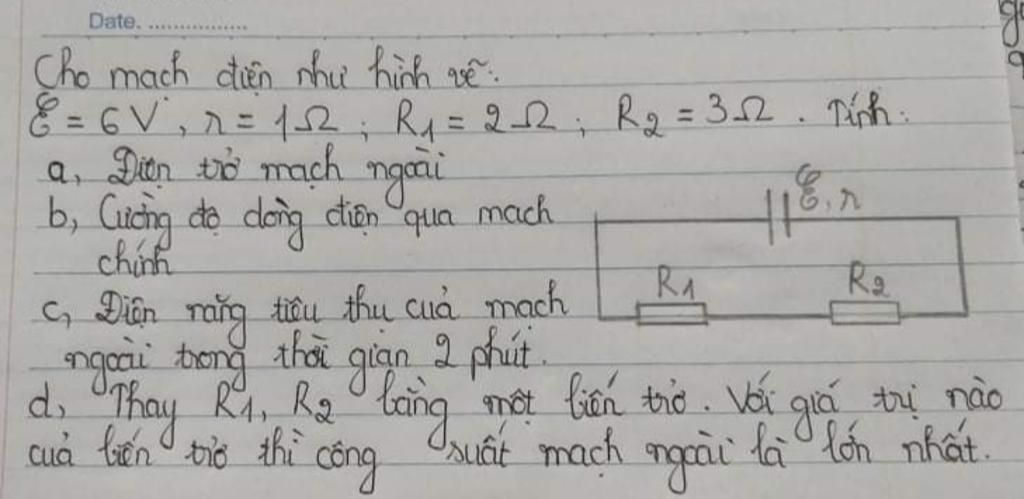 Date. ................
Cho mạch điện như hình vẽ:
ℰ = 6V, r = 1Ω; R1 = 2Ω; R2 = 3Ω. Tính:
a, Điện trở mạch ngoài
b, Cường độ dòng điện qua mạch
chính
ℰ, r
R1 R2
c, Điện năng tiêu thụ của mạch
ngoài trong thời gian 2 phút.
d, Thay R1, R2 bằng một biến trở. Với giá trị nào
của biến trở thì công suất mạch ngoài là lớn nhất.